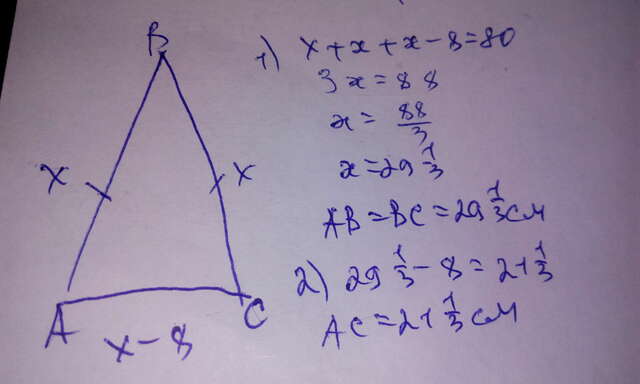 B
x
x
A
C
x - 8
1) x + x + x - 8 = 80
3x = 88
x = 88/3
x = 29 1/3
AB = BC = 29 1/3 см
2) 29 1/3 - 8 = 21 1/3
AC = 21 1/3 см